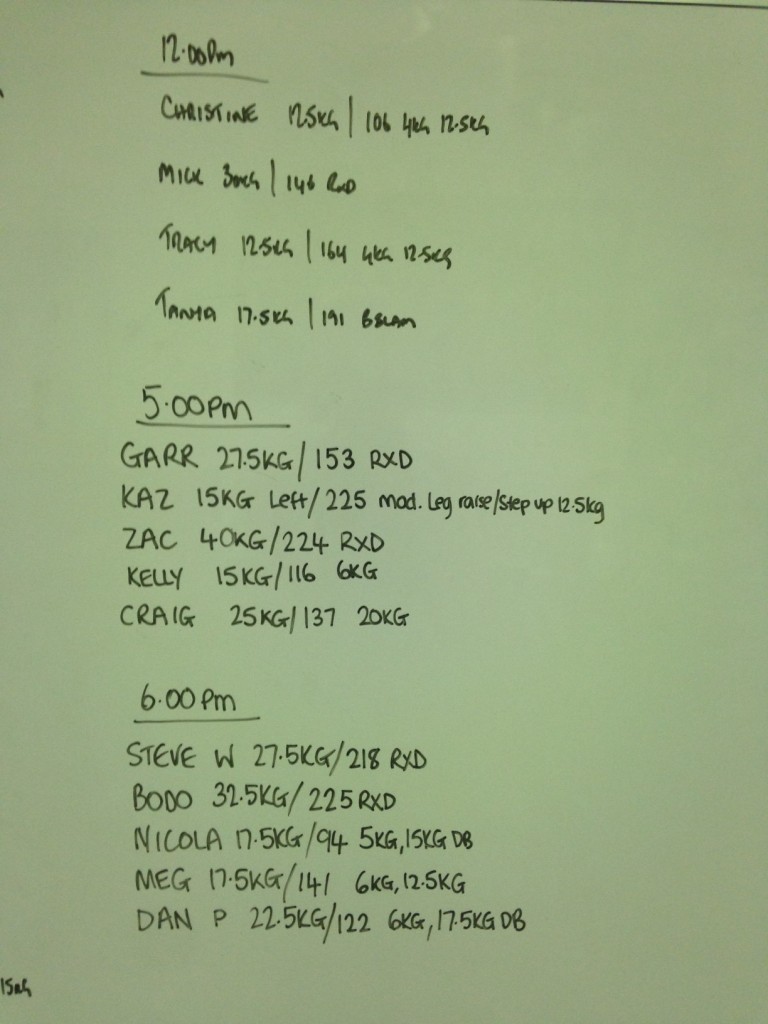 12.00pm
CHRISTINE 12.5KG | 106 4KG 12.5KG
MICK 30KG | 146 RXD
TRACY 12.5KG | 164 4KG 12.5KG
TANYA 17.5KG | 191
5.00pm
GARR 27.5KG/153 RXD
KAZ 15KG Left/225 mod. Leg raise/Step up 12.5kg
ZAC 40KG/224 RXD
KELLY 15KG/116 6KG
CRAIG 25KG/137 20KG
6.00pm
STEVE W 27.5KG/218 RXD
BODO 32.5KG/225 RXD
NICOLA 17.5KG/94 5KG, 15KG DB
MEG 17.5KG/141 6KG, 12.5KG
DAN P 22.5KG/122 6KG, 17.5KG DB
15KG